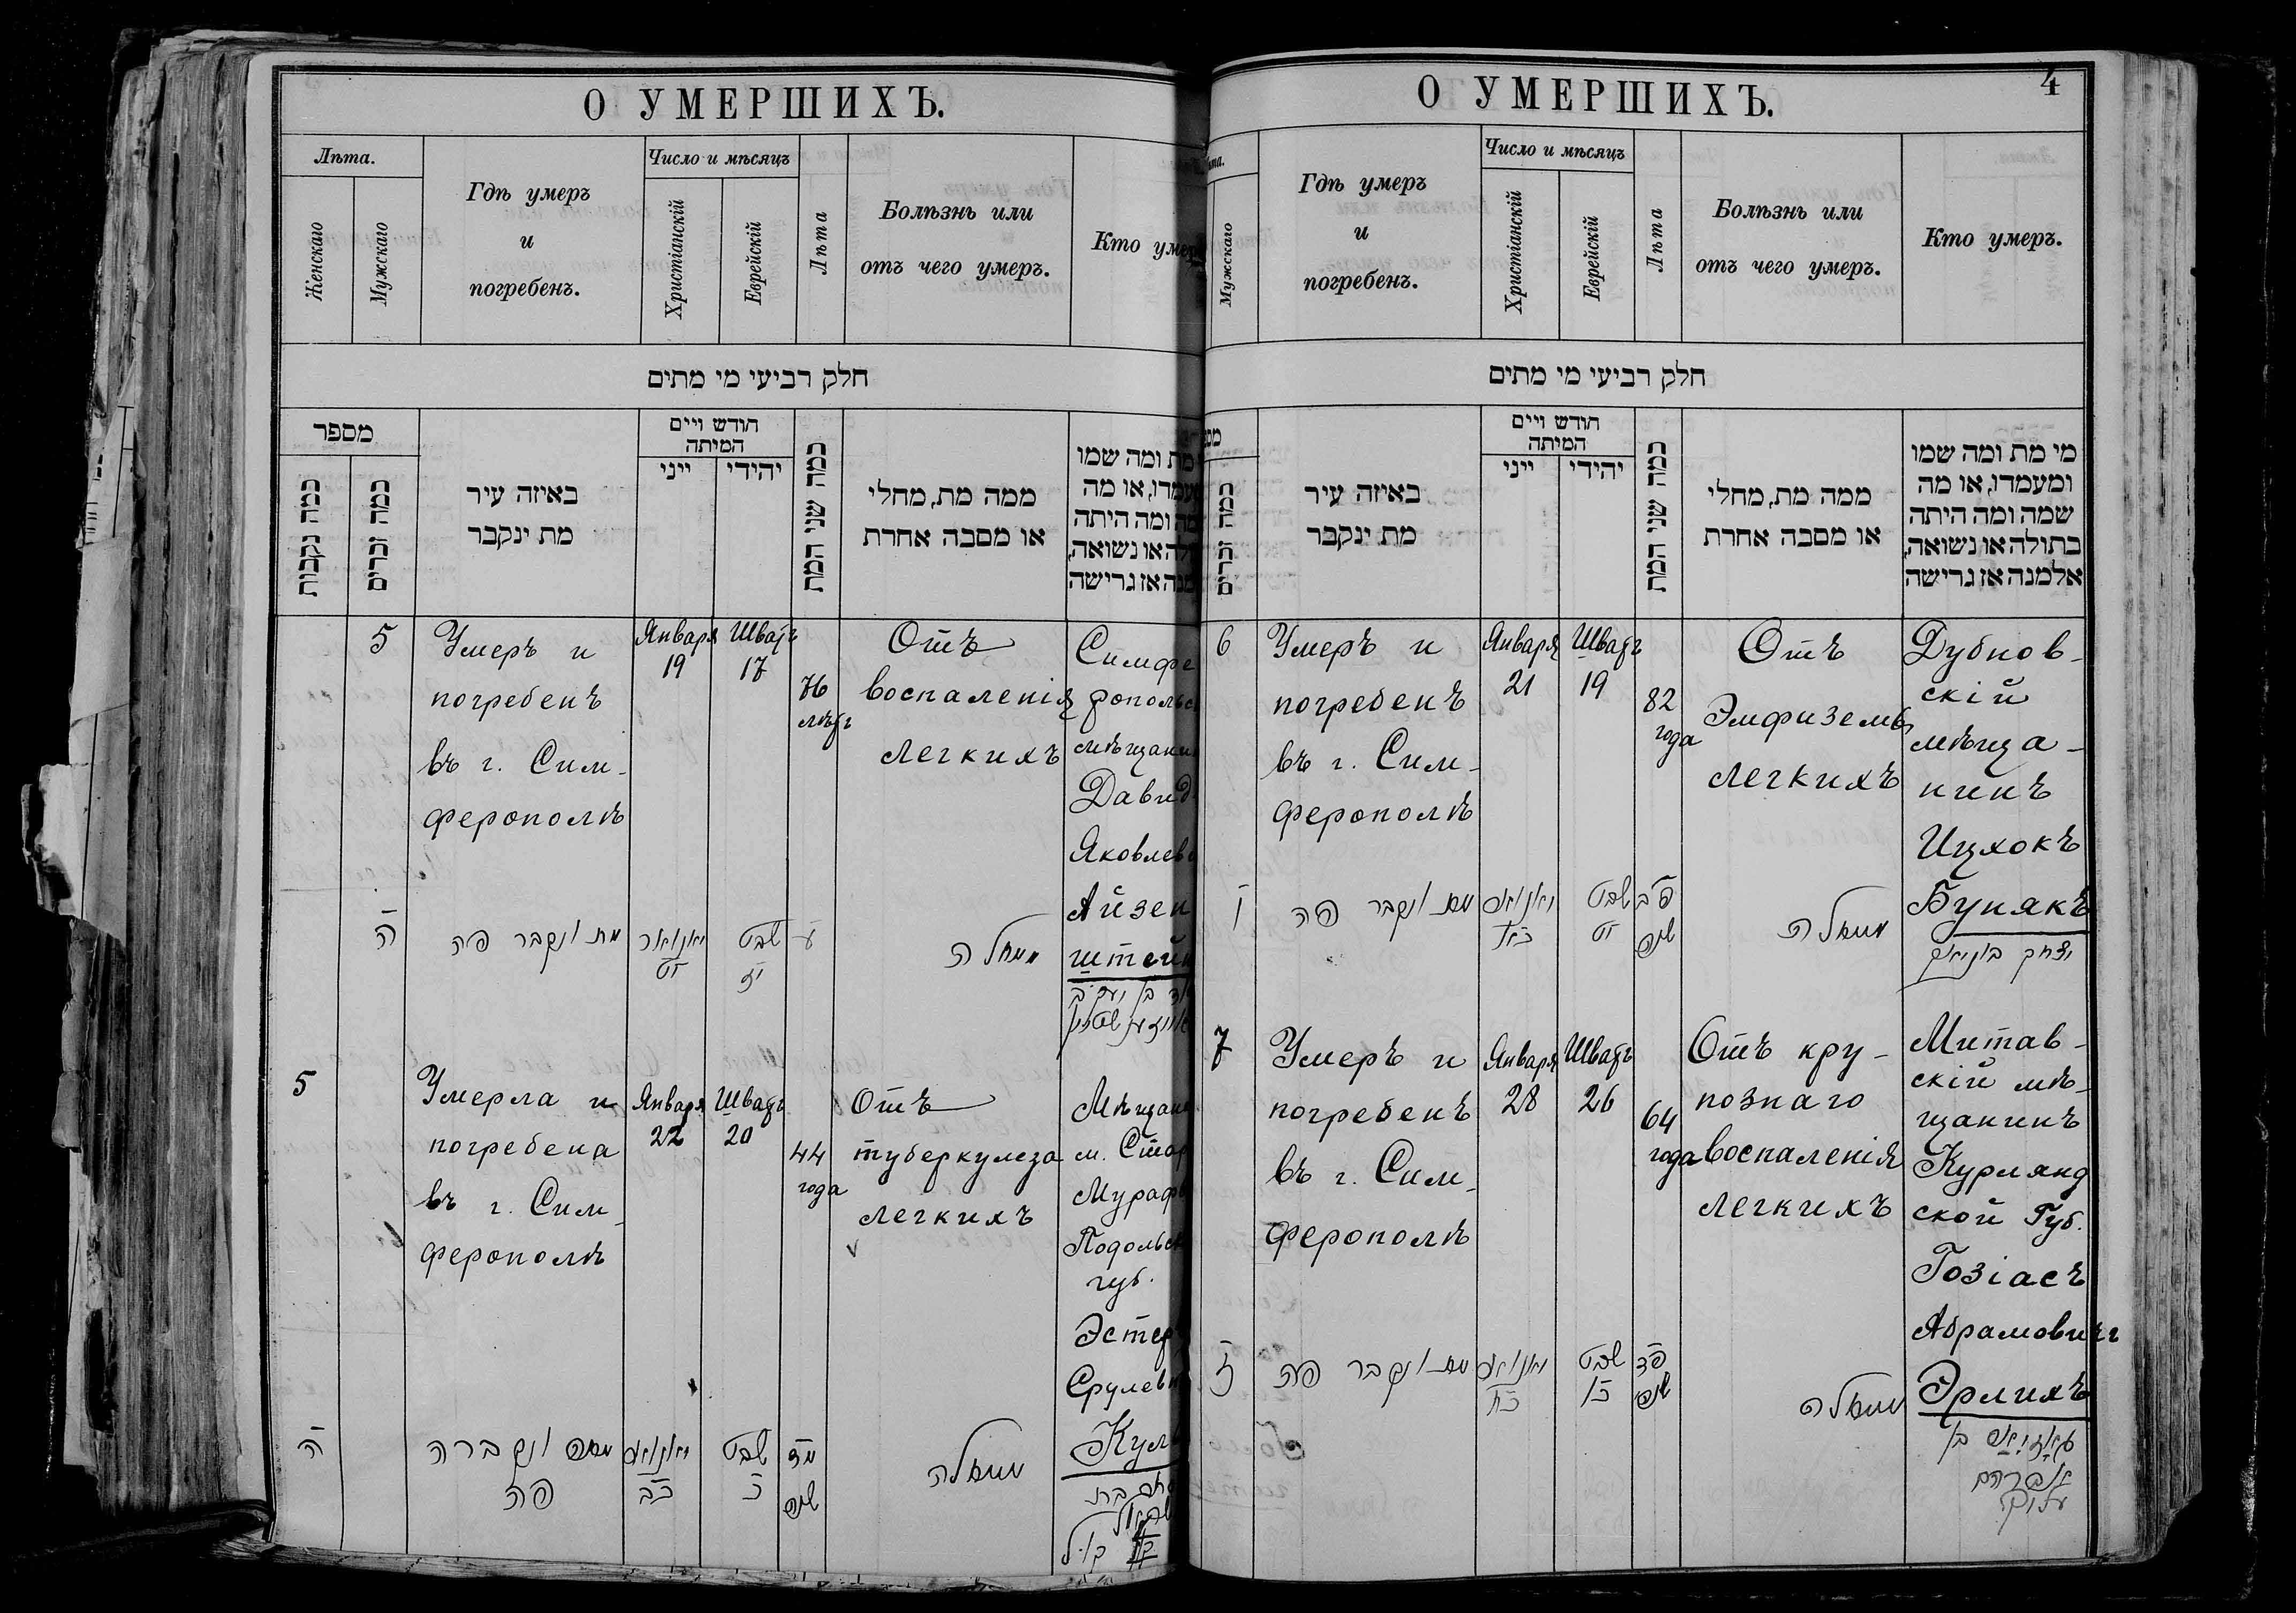 О УМЕРШИХЪ.
Лѣта.
Женскаго
Мужскаго
Гдѣ умеръ
и
погребенъ.
Число и мѣсяцъ
Христіанскій
Еврейскій
Лѣта
Болѣзнь или
отъ чего умеръ.
Кто умер
חלק רביעי מי מתים
מספר
כמה נקבות
כמה זכרים
באיזה עיר
מת ינקבר
חודש ויים
המיתה
ייני
יהידי
כמה שני המת
ממה מת, מחלי
או מסבה אחרת
מת ומה שמו
מעמדו, או מה
מה ומה היתה
לה או נשואה,
מנה אז גרישה
5
Умеръ и
погребенъ
въ г. Сим-
ферополѣ
Января
19
Шватъ
17
76
лѣтъ
Отъ
воспаленія
легкихъ
Симфе
ропольс
мѣщани
Давид
Яковлев
Айзен
штей
ה
מת ונקבר פה
יאנואר
יט
שבט
יז
ממחלה
בן יעקב
5
Умерла и
погребена
въ г. Сим-
ферополѣ
Января
22
Шватъ
20
44
года
Отъ
туберкулеза
легкихъ
Мѣщан
м. Стар
Мураф
Подольск
губ.
Эстер
Срулев
Кул
ה
מתה ונקברה
פה
יאנואר
כב
שבט
כ
מד
שנה
ממחלה
О УМЕРШИХЪ.
4
Мужскаго
Гдѣ умеръ
и
погребенъ.
Число и мѣсяцъ
Христіанскій
Еврейскій
Лѣта
Болѣзнь или
отъ чего умеръ.
Кто умеръ.
חלק רביעי מי מתים
כמה זכרים
באיזה עיר
מת ינקבר
חודש ויים
המיתה
ייני
יהידי
כמה שני המת
ממה מת, מחלי
או מסבה אחרת
מי מת ומה שמו
ומעמדו, או מה
שמה ומה היתה
בתולה או נשואה,
אלמנה אז גרישה
6
Умеръ и
погребенъ
въ г. Сим-
ферополѣ
Января
21
Шватъ
19
82
года
Отъ
Эмфиземы
легкихъ
Дубнов-
скій
мѣща-
нинъ
Ицхокъ
Бунякъ
ו
מת ונקבר פה
יאנואר
כא
שבט
יט
פב
שנה
ממחלה
יצחק בוניאק
7
Умеръ и
погребенъ
въ г. Сим-
ферополѣ
Января
28
Шватъ
26
64
года
Отъ кру-
познаго
воспаленія
легкихъ
Митав-
скій мѣ-
щанинъ
Курлянд
ской Губ.
Гозіасъ
Абрамовичъ
Эрлихъ
ז
מת ונקבר פה
יאנואר
כח
שבט
כו
סד
שנה
ממחלה
בן
אברהם